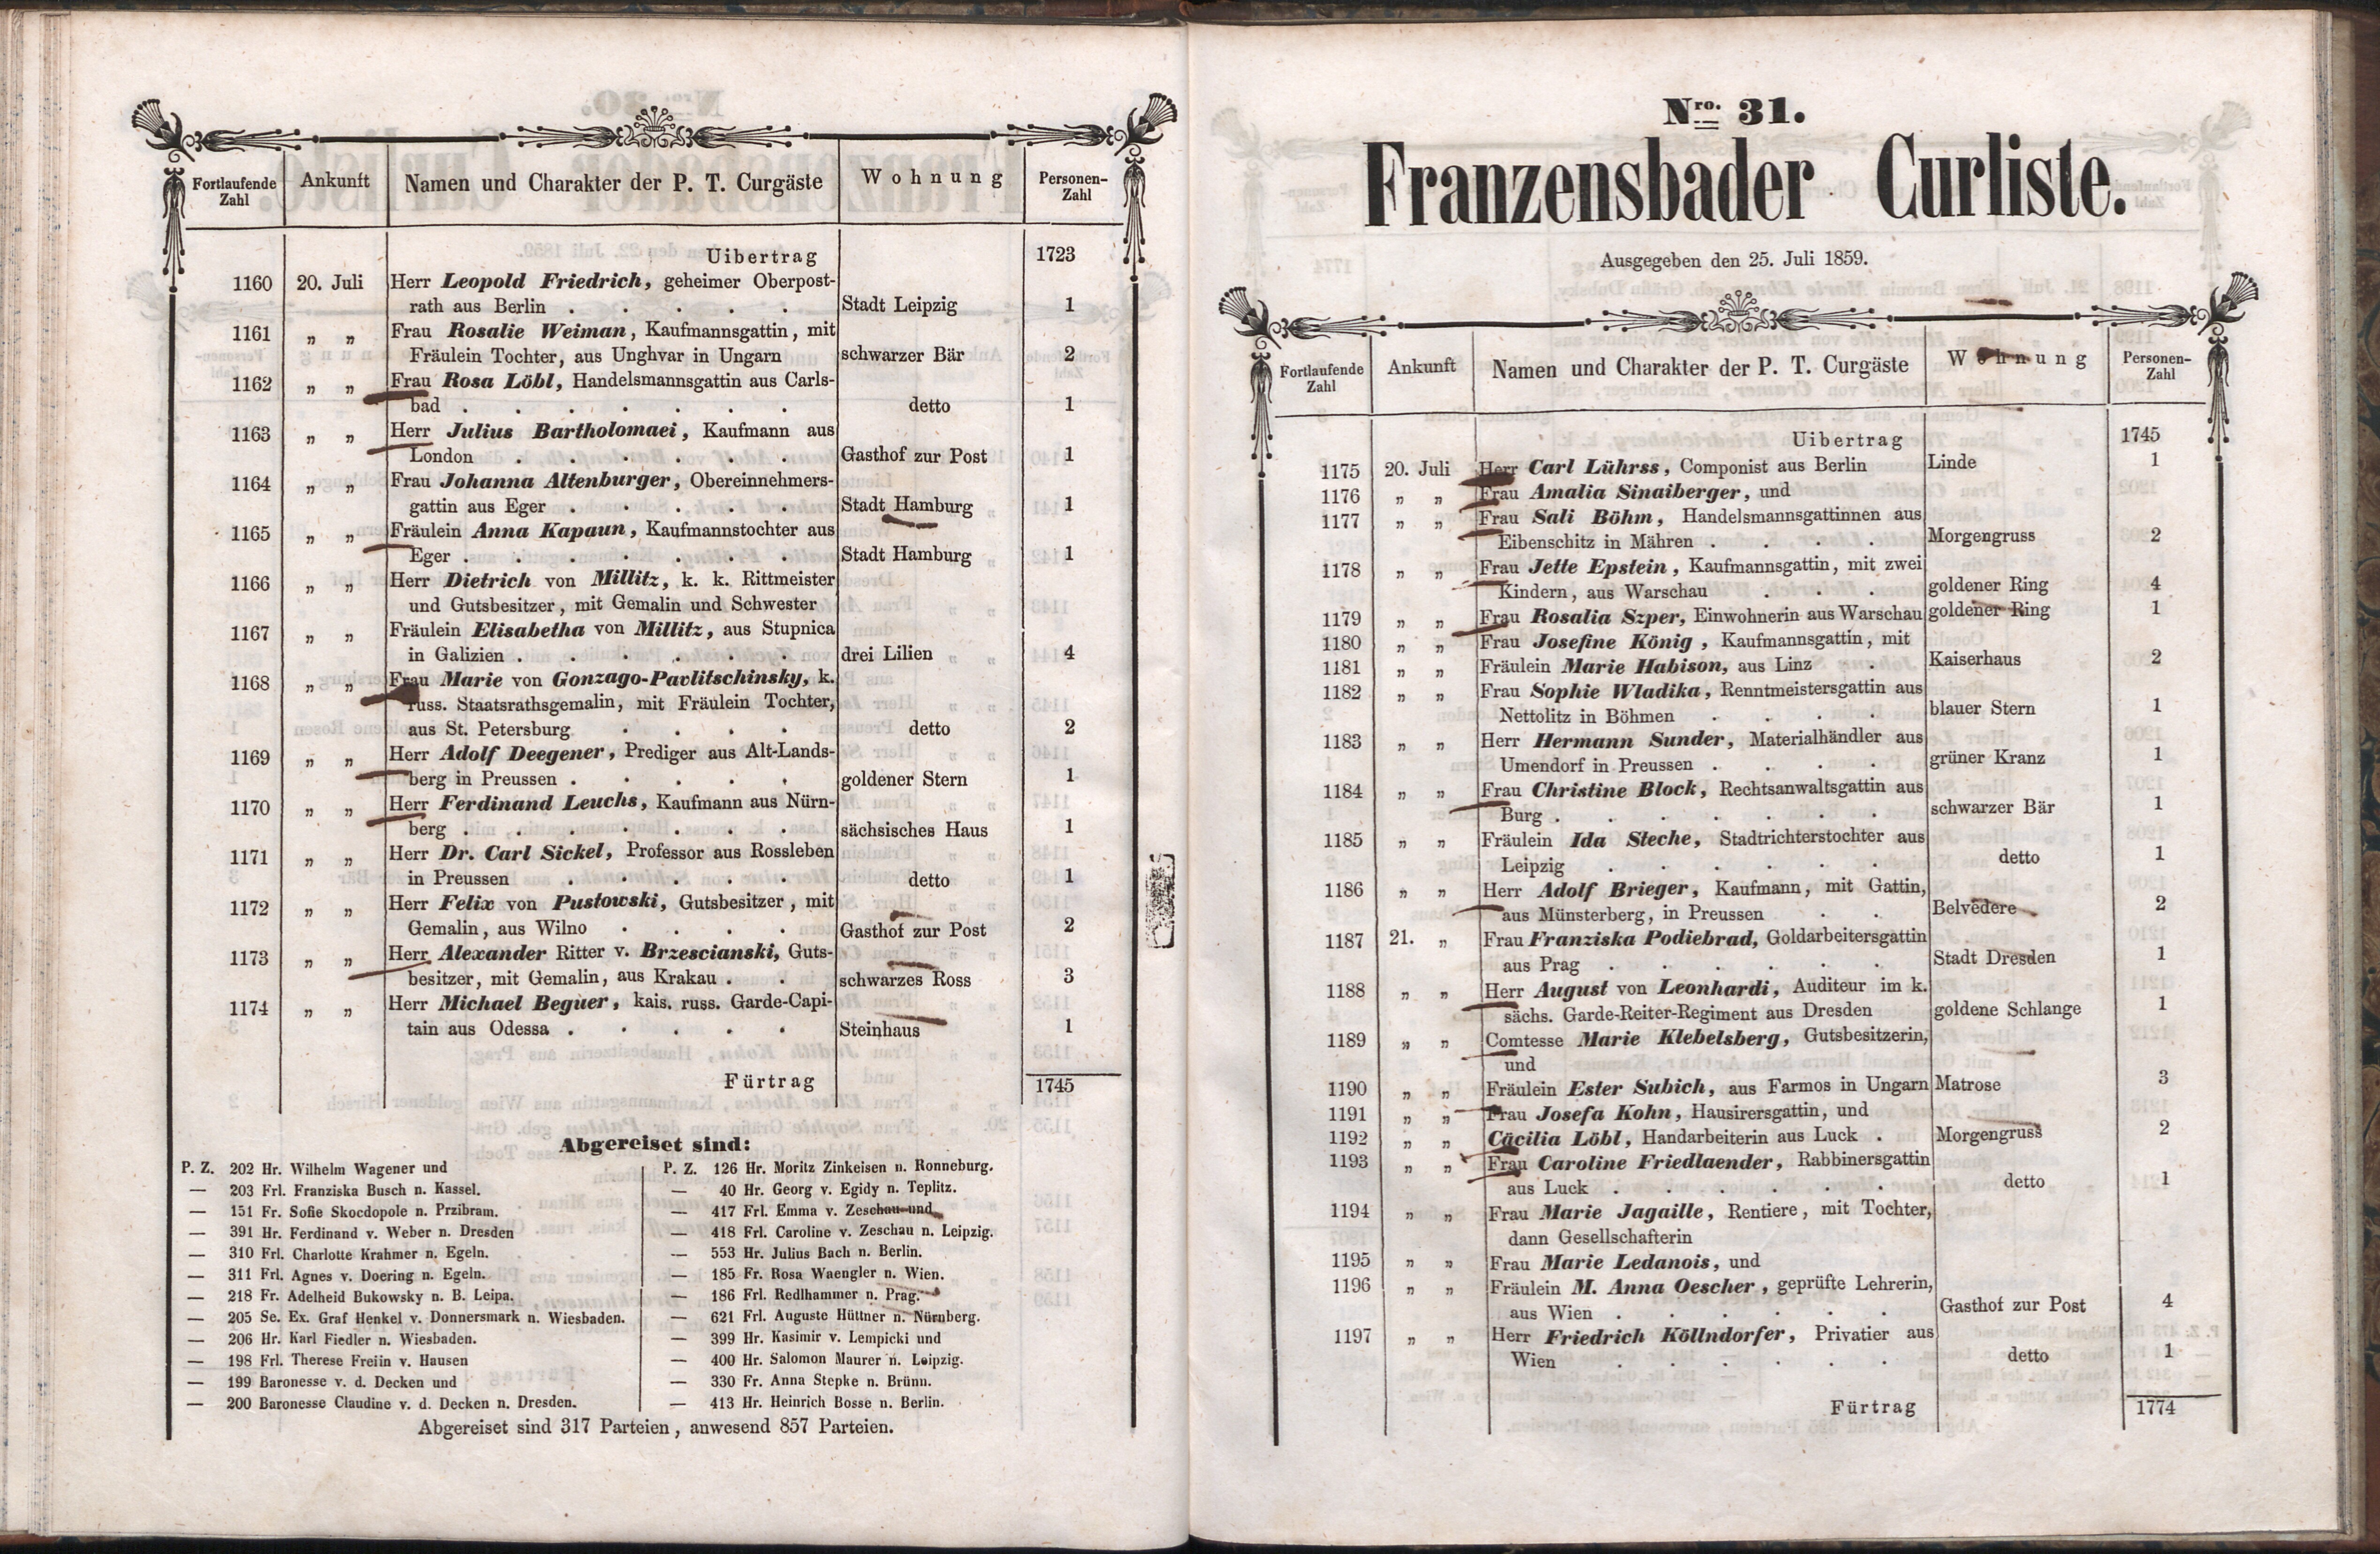 Fortlaufende Zahl Ankunft Namen und Charakter der P. T. Curgäste Wohnung Personen-Zahl
Uibertrag 1723
1160 20. Juli Herr Leopold Friedrich, geheimer Oberpost-
rath aus Berlin . . . . . Stadt Leipzig 1
1161 „ „ Frau Rosalie Weiman, Kaufmannsgattin, mit
Fräulein Tochter, aus Unghvar in Ungarn schwarzer Bär 2
1162 „ „ Frau Rosa Löbl, Handelsmannsgattin aus Carls-
bad . . . . . . . detto 1
1163 „ „ Herr Julius Bartholomaei, Kaufmann aus
London . . . . . . Gasthof zur Post 1
1164 „ „ Frau Johanna Altenburger, Obereinnehmers-
gattin aus Eger . . . . . Stadt Hamburg 1
1165 „ „ Fräulein Anna Kapaun, Kaufmannstochter aus
Eger . . . . . . . Stadt Hamburg 1
1166 „ „ Herr Dietrich von Millitz, k. k. Rittmeister
und Gutsbesitzer, mit Gemalin und Schwester
1167 „ „ Fräulein Elisabetha von Millitz, aus Stupnica
in Galizien . . . . . . drei Lilien 4
1168 „ „ Frau Marie von Gonzago-Pavlitschinsky, k.
russ. Staatsrathsgemalin, mit Fräulein Tochter,
aus St. Petersburg . . . . detto 2
1169 „ „ Herr Adolf Deegener, Prediger aus Alt-Lands-
berg in Preussen . . . . . goldener Stern 1
1170 „ „ Herr Ferdinand Leuchs, Kaufmann aus Nürn-
berg . . . . . . . sächsisches Haus 1
1171 „ „ Herr Dr. Carl Sickel, Professor aus Rossleben
in Preussen . . . . . detto 1
1172 „ „ Herr Felix von Pustowski, Gutsbesitzer, mit
Gemalin, aus Wilno . . . . Gasthof zur Post 2
1173 „ „ Herr Alexander Ritter v. Brzescianski, Guts-
besitzer, mit Gemalin, aus Krakau . . schwarzes Ross 3
1174 „ „ Herr Michael Beguer, kais. russ. Garde-Capi-
tain aus Odessa . . . . . Steinhaus 1
Fürtrag 1745
Abgereiset sind:
P. Z. 202 Hr. Wilhelm Wagener und
— 203 Frl. Franziska Busch n. Kassel.
— 151 Fr. Sofie Skocdopole n. Przibram.
— 391 Hr. Ferdinand v. Weber n. Dresden
— 310 Frl. Charlotte Krahmer n. Egeln.
— 311 Frl. Agnes v. Doering n. Egeln.
— 218 Fr. Adelheid Bukowsky n. B. Leipa.
— 205 Se. Ex. Graf Henkel v. Donnersmark n. Wiesbaden.
— 206 Hr. Karl Fiedler n. Wiesbaden.
— 198 Frl. Therese Freiin v. Hausen
— 199 Baronesse v. d. Decken und
— 200 Baronesse Claudine v. d. Decken n. Dresden.
P. Z. 126 Hr. Moritz Zinkeisen n. Ronneburg.
— 40 Hr. Georg v. Egidy n. Teplitz.
— 417 Frl. Emma v. Zeschau und
— 418 Frl. Caroline v. Zeschau n. Leipzig.
— 553 Hr. Julius Bach n. Berlin.
— 185 Fr. Rosa Waengler n. Wien.
— 186 Frl. Redlhammer n. Prag.
— 621 Frl. Auguste Hüttner n. Nürnberg.
— 399 Hr. Kasimir v. Lempicki und
— 400 Hr. Salomon Maurer n. Leipzig.
— 330 Fr. Anna Stepke n. Brünn.
— 413 Hr. Heinrich Bosse n. Berlin.
Abgereiset sind 317 Parteien, anwesend 857 Parteien.
Nro. 31.
Franzensbader Curliste.
Ausgegeben den 25. Juli 1859.
Fortlaufende Zahl Ankunft Namen und Charakter der P. T. Curgäste Wohnung Personen-Zahl
Uibertrag 1745
1175 20. Juli Herr Carl Lührss, Componist aus Berlin Linde 1
1176 „ „ Frau Amalia Sinaiberger, und
1177 „ „ Frau Sali Böhm, Handelsmannsgattinnen aus
Eibenschitz in Mähren . . . . Morgengruss 2
1178 „ „ Frau Jette Epstein, Kaufmannsgattin, mit zwei
Kindern, aus Warschau . . . goldener Ring 4
1179 „ „ Frau Rosalia Szper, Einwohnerin aus Warschau goldener Ring 1
1180 „ „ Frau Josefine König, Kaufmannsgattin, mit
1181 „ „ Fräulein Marie Habison, aus Linz . Kaiserhaus 2
1182 „ „ Frau Sophie Wladika, Renntmeistersgattin aus
Nettolitz in Böhmen . . . . blauer Stern 1
1183 „ „ Herr Hermann Sunder, Materialhändler aus
Umendorf in Preussen . . . . grüner Kranz 1
1184 „ „ Frau Christine Block, Rechtsanwaltsgattin aus
Burg . . . . . . . schwarzer Bär 1
1185 „ „ Fräulein Ida Steche, Stadtrichterstochter aus
Leipzig . . . . . . detto 1
1186 „ „ Herr Adolf Brieger, Kaufmann, mit Gattin,
aus Münsterberg, in Preussen . . Belvedere 2
1187 21. „ Frau Franziska Podiebrad, Goldarbeitersgattin
aus Prag . . . . . . Stadt Dresden 1
1188 „ „ Herr August von Leonhardi, Auditeur im k.
sächs. Garde-Reiter-Regiment aus Dresden goldene Schlange 1
1189 „ „ Comtesse Marie Klebelsberg, Gutsbesitzerin,
und
1190 „ „ Fräulein Ester Subich, aus Farmos in Ungarn Matrose 3
1191 „ „ Frau Josefa Kohn, Hausirersgattin, und
1192 „ „ Cäcilia Löbl, Handarbeiterin aus Luck . Morgengruss 2
1193 „ „ Frau Caroline Friedlaender, Rabbinersgattin
aus Luck . . . . . . detto 1
1194 „ „ Frau Marie Jagaille, Rentiere, mit Tochter,
dann Gesellschafterin
1195 „ „ Frau Marie Ledanois, und
1196 „ „ Fräulein M. Anna Oescher, geprüfte Lehrerin,
aus Wien . . . . . . Gasthof zur Post 4
1197 „ „ Herr Friedrich Köllndorfer, Privatier aus
Wien . . . . . . detto 1
Fürtrag 1774